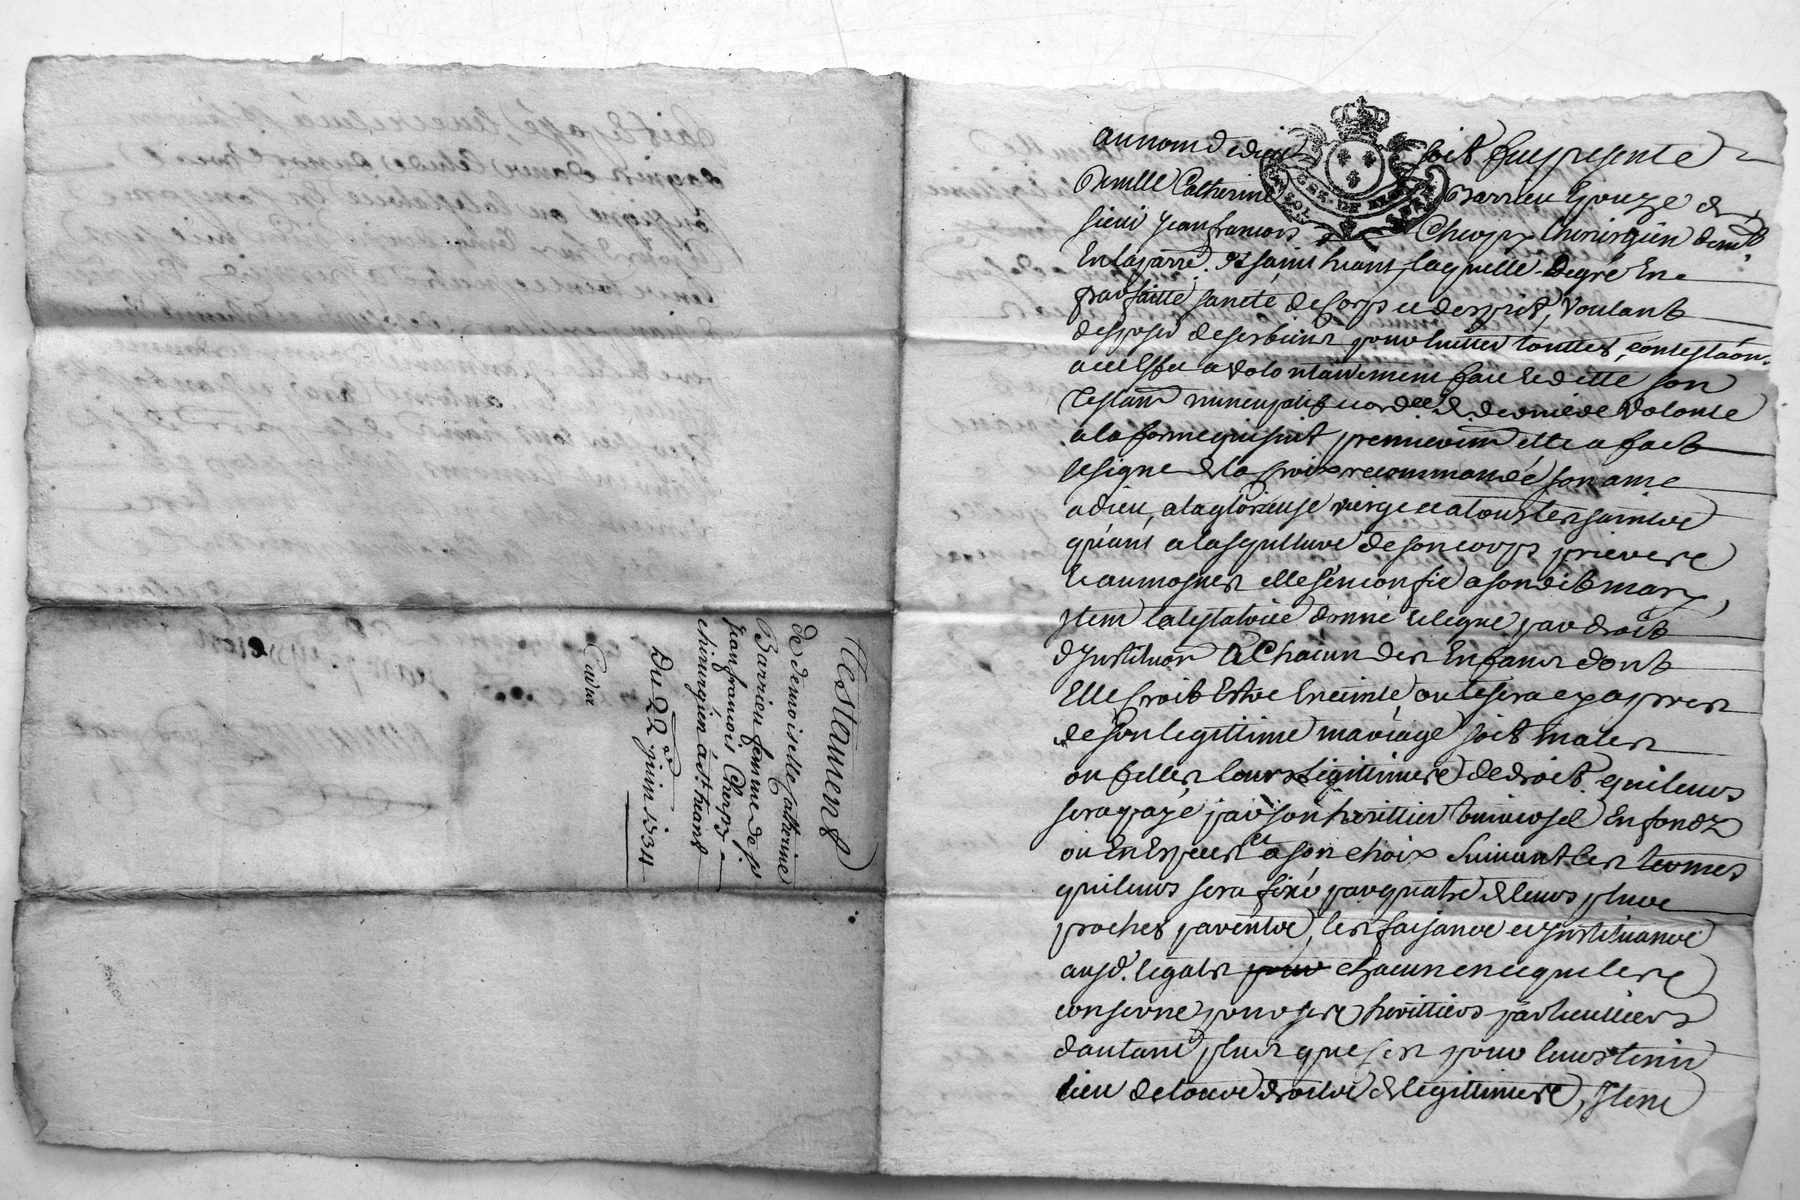 Testament
de demoiselle Catherine
Barrieu femme de sr
Jean françois Cherpy
chirurgien de st. heand
Du 22e juin 1734
au nom de dieu soit fuepresente
demlle Catherine Barrieu Epouze de
sieur Jean francois Cherpy chirurgien demt
En laparre. de saint heant, laquelle degré Ene
parfaitte santé de corps et desprit, voulant
disposer deses biens pour luitter touttes contestaon.
acest effet a volontairement fait et dicté son
Testamt nuncupatif et ordce & derniere volonté
a la forme qui suit premieremt elle a fait
le signe de la croix recommandé son ame
a dieu, a la glorieuse vierge et a tous les saints
quant a la sepulture de son corps prieres
et aumosnes elle s'en confie a son dit mary,
Item la testatrice donne et legue par droit
d'Institution a Chacun des Enfans dont
Elle croit Estre Enceinte, ou le sera cy apres
de son legittime mariage soit males
ou filles leurs legittimes de droit. qui leurs
sera payé par son herittier universel En fonds
ou En Especes et a son choix suivant les termes
qui leurs sera fixé par quatre de leurs plus
proches parents, les faisant et Instituant
ausd. legats chacun en ce qui les
conserne pour ses herittiers particulliers
dautant plus que ses pour leurs tenir
lieu de tous droits & legittimes, Item